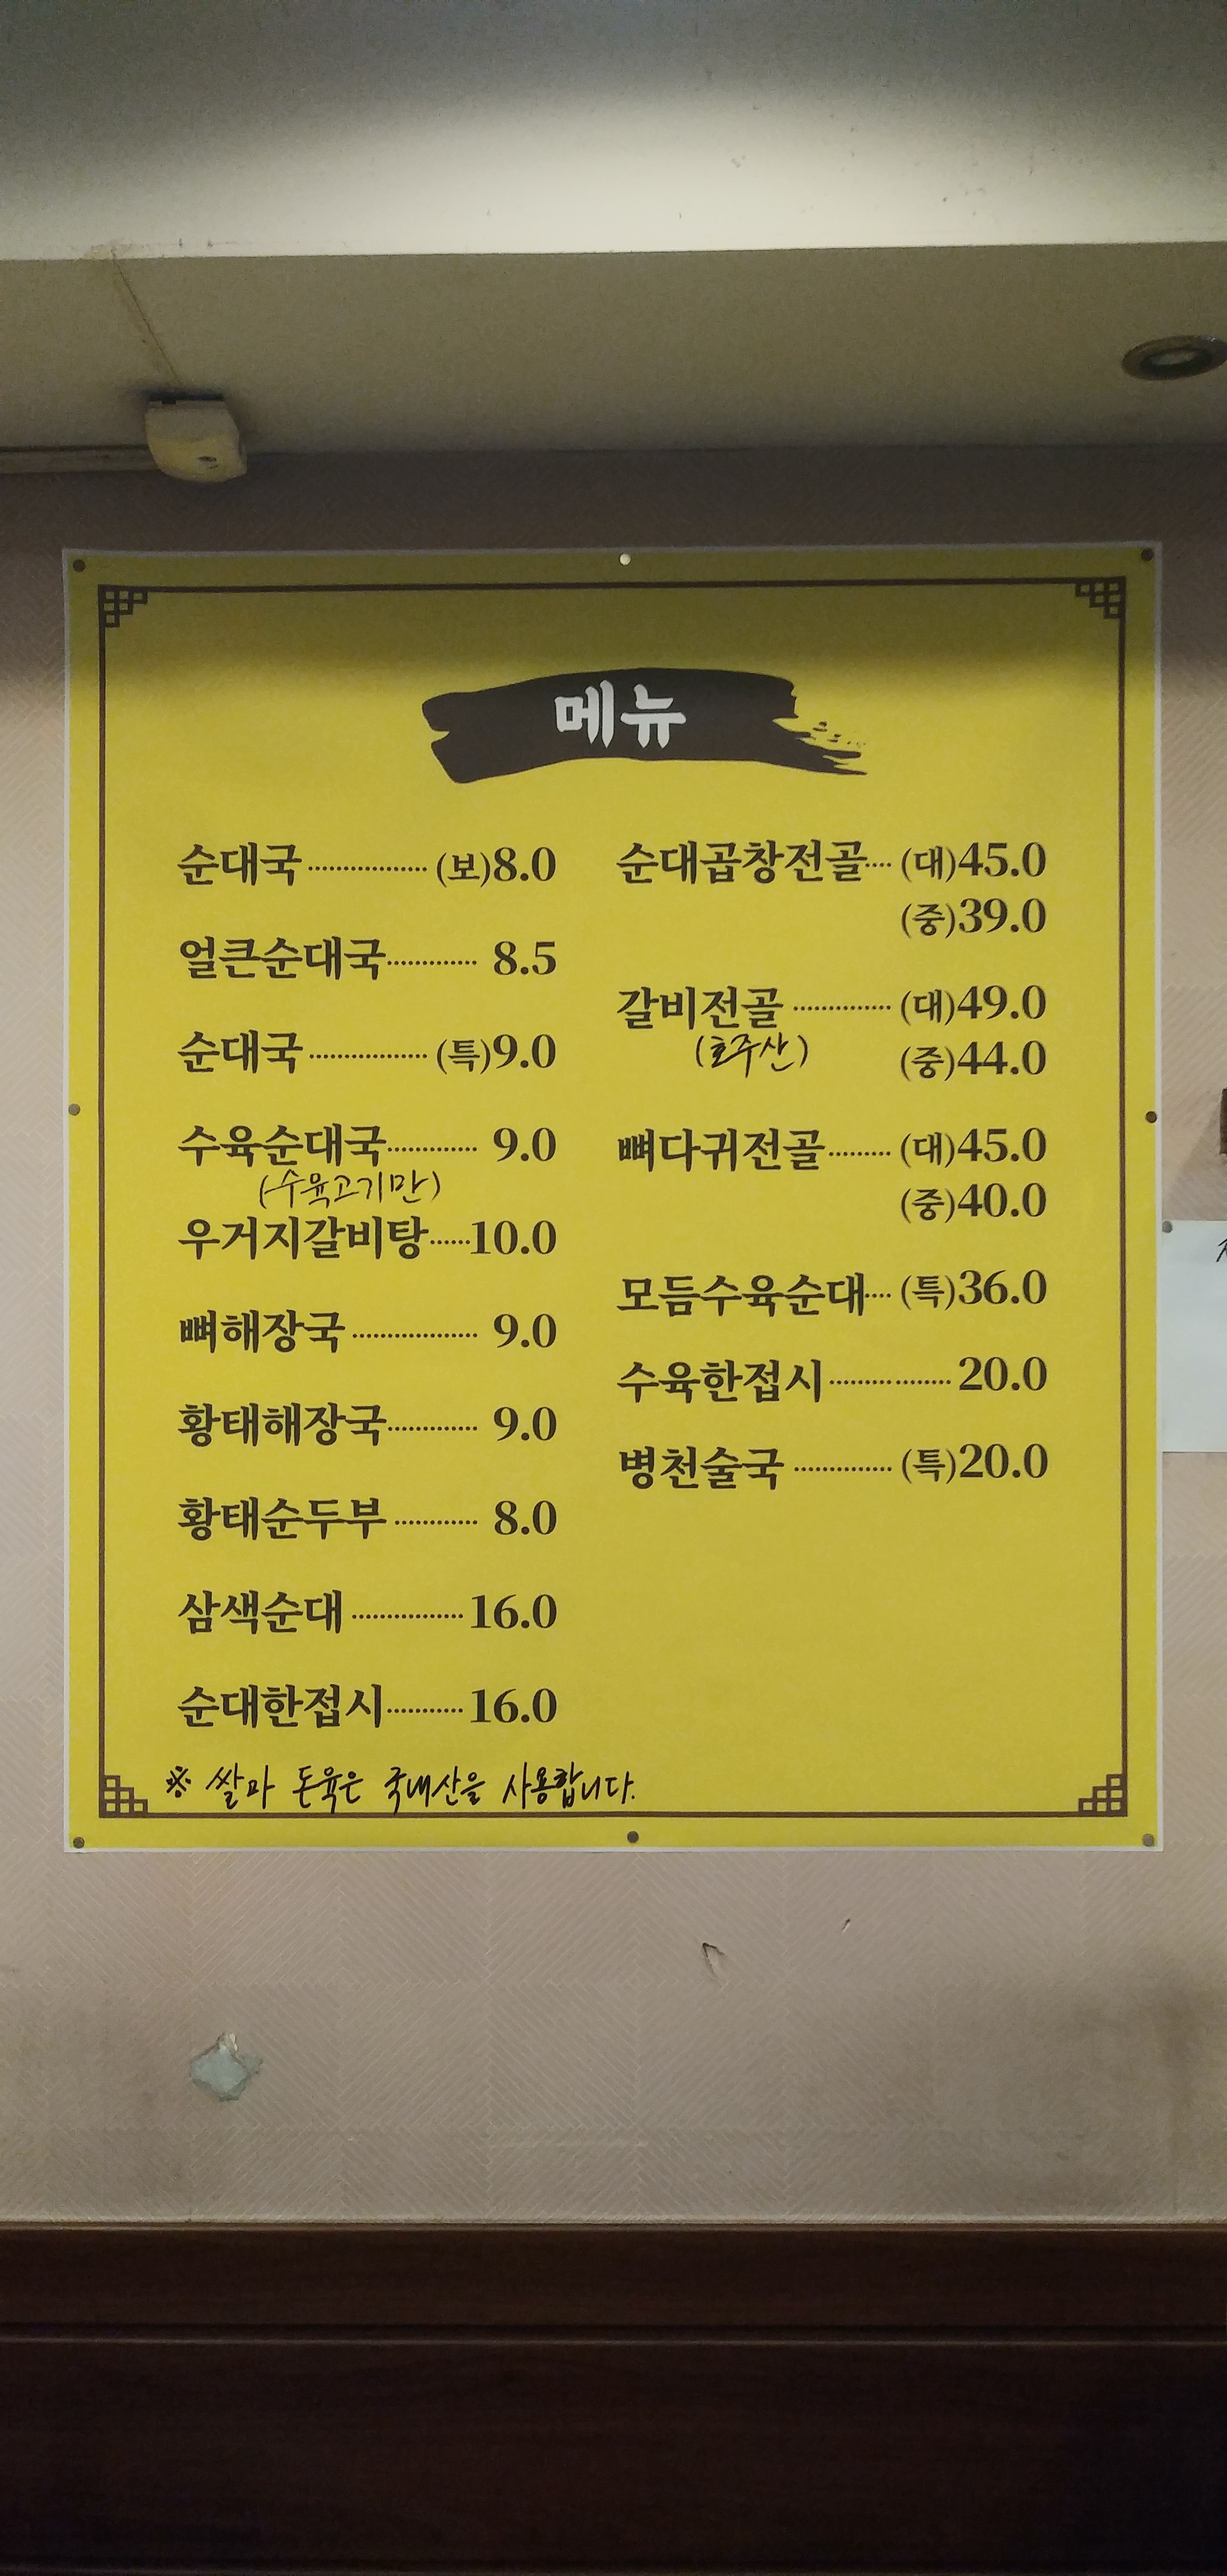 메뉴
순대국 (보)8.0
얼큰순대국 8.5
순대국 (특)9.0
수육순대국 9.0
(수육고기만)
우거지갈비탕 10.0
뼈해장국 9.0
황태해장국 9.0
황태순두부 8.0
삼색순대 16.0
순대한접시 16.0
순대곱창전골 (대)45.0
(중)39.0
갈비전골 (대)49.0
(호주산) (중)44.0
뼈다귀전골 (대)45.0
(중)40.0
모듬수육순대 (특)36.0
수육한접시 20.0
병천술국 (특)20.0
※ 쌀과 돈육은 국내산을 사용합니다.